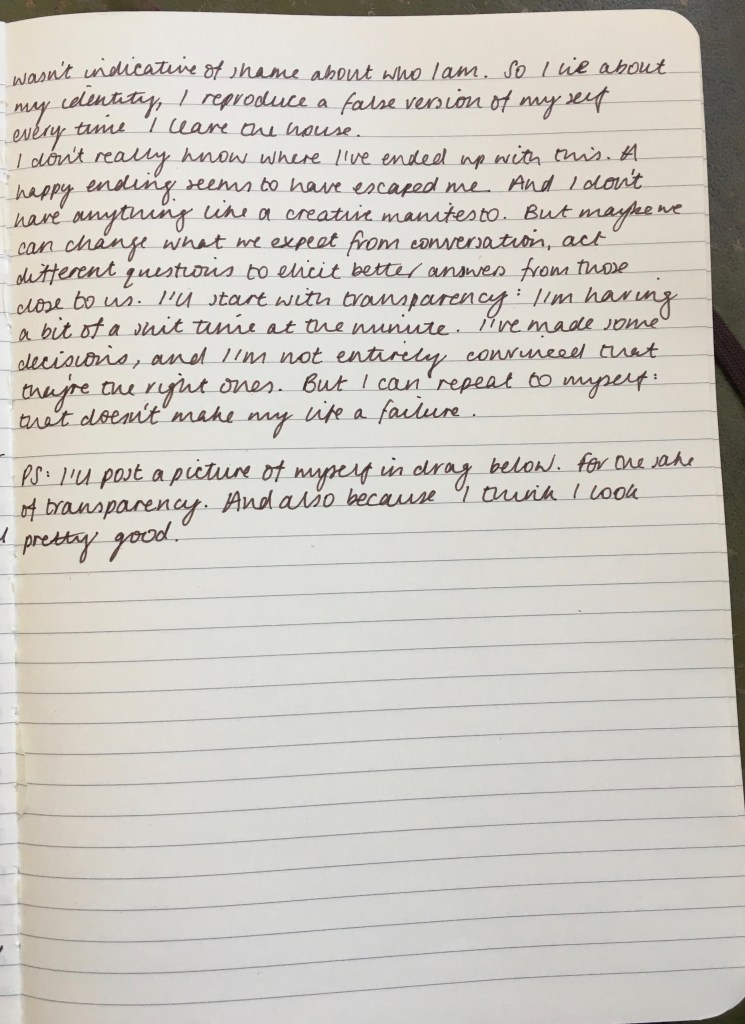 wasn't indicative of shame about who I am. So I lie about
my identity, I reproduce a false version of myself
every time I leave the house.
I don't really know where I've ended up with this. A
happy ending seems to have escaped me. And I don't
have anything like a creative manifesto. But maybe we
can change what we expect from conversation, act
different questions to elicit better answers from those
close to us. I'll start with transparency: I'm having
a bit of a shit time at the minute. I've made some
decisions, and I'm not entirely convinced that
they're the right ones. But I can repeat to myself:
that doesn't make my life a failure.
PS: I'll post a picture of myself in drag below. For the sake
of transparency. And also because I think I look
pretty good.